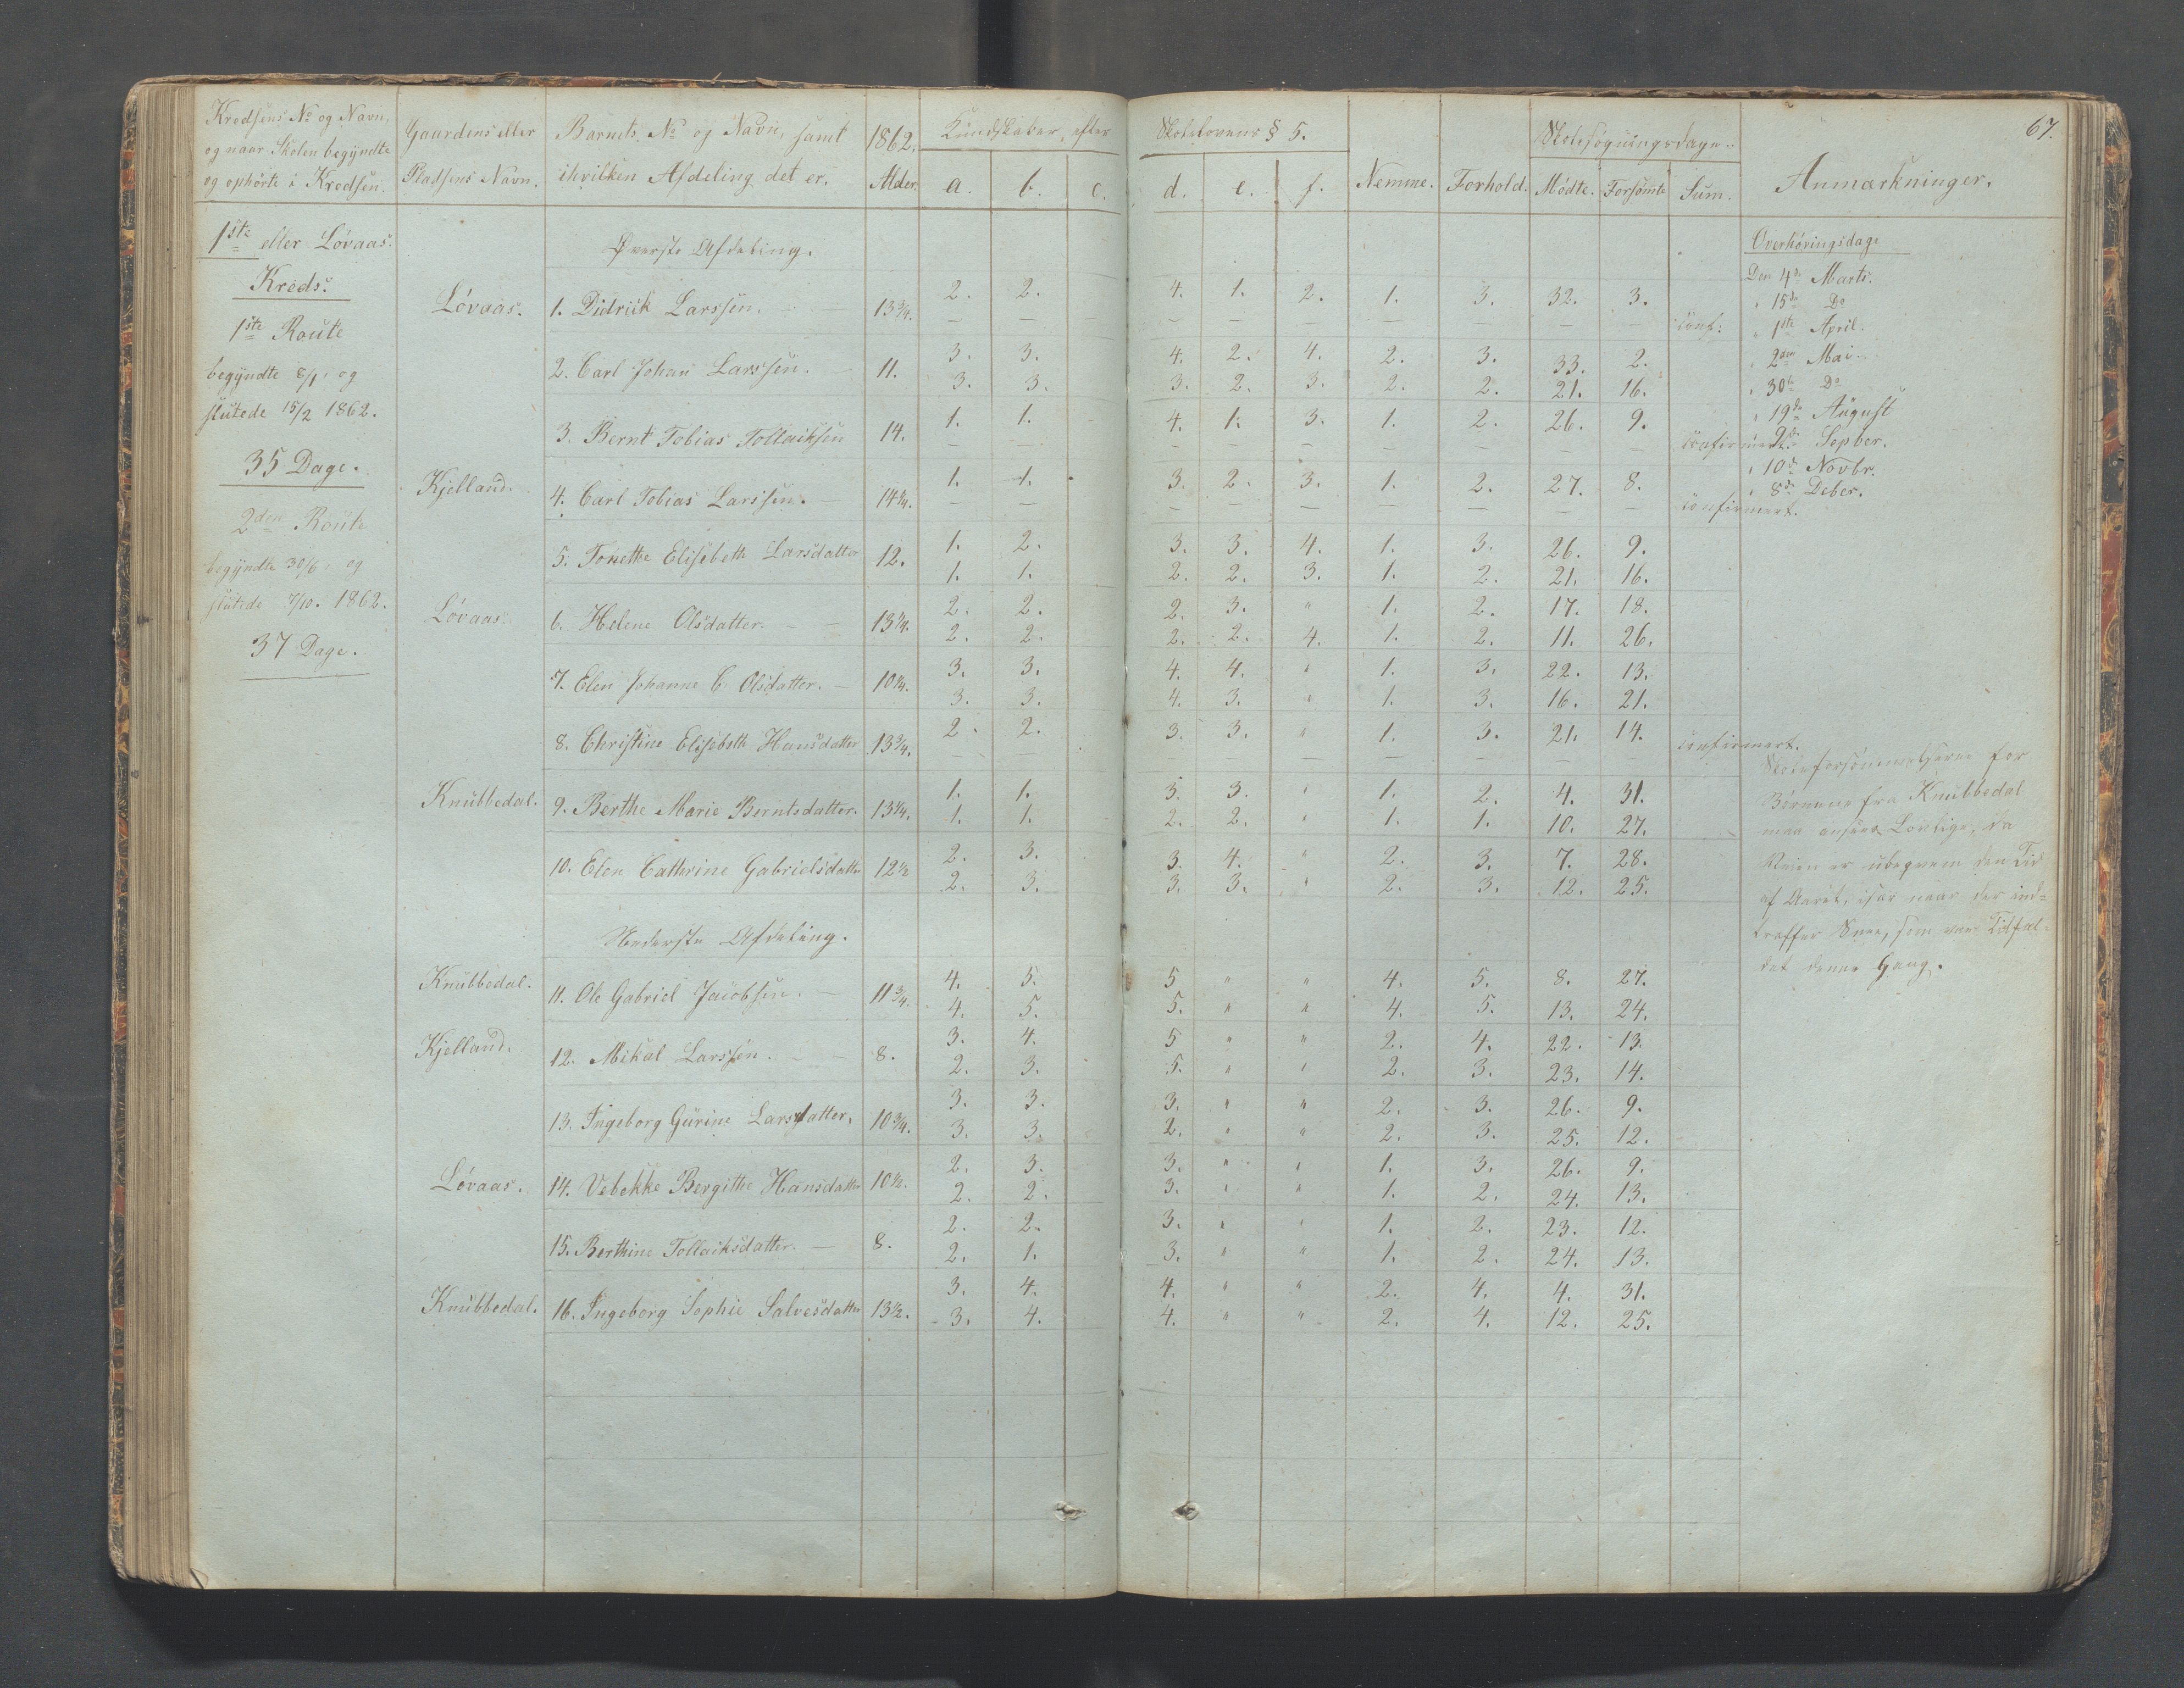 67.
Kredsens No og Navn, og naar Skolen begyndte og ophörte i Kredsen.
Gaardens eller Pladsens Navn.
Barnets No og Navn, samt ihvilken Afdeling det er.
1862. Alder.
Kundskaber, efter Skolelovens § 5.
a. b. c. d. e. f.
Nemme. Forhold.
Skolesögningsdage.
Mödte. Forsömte Sum.
Anmærkninger.
1ste eller Lövaas
Kreds.
1ste Route
begyndte 8/1, og
slutede 15/2 1862.
35 Dage.
2den Route
begyndte 30/6, og
slutede 7/10. 1862.
37 Dage.
Øverste Afdeling.
Lövaas. 1. Didrick Larssen. 13 3/4. 2. 2. 4. 1. 2. 1. 3. 32. 3.
— — — — — — — — — Conf:
2. Carl Johan Larssen. 11. 3. 3. 4. 2. 4. 2. 3. 33. 2.
3. 3. 3. 2. 3. 2. 2. 21. 16.
3. Bernt Tobias Tollaiksen 14. 1. 1. 4. 1. 3. 1. 2. 26. 9.
— — — — — — — — — Confirmert.
Kjelland. 4. Carl Tobias Larssen. 14 1/4. 1. 1. 3. 2. 3. 1. 2. 27. 8.
— — — — — — — — — Confirmert.
5. Tonette Elisebeth Larsdatter 12. 1. 2. 3. 3. 4. 1. 3. 26. 9.
1. 1. 2. 2. 3. 1. 2. 21. 16.
Lövaas. 6. Helene Olsdatter. 13 1/4. 2. 2. 2. 3. " 1. 2. 17. 18.
2. 2. 2. 2. 4. 1. 2. 11. 26.
7. Elen Johanne C. Olsdatter. 10 1/4. 3. 3. 4. 4. " 1. 3. 22. 13.
3. 3. 4. 3. " 1. 3. 16. 21.
8. Christine Elisebeth Hansdatter 13 3/4. 2. 2. 3. 3. " 1. 3. 21. 14.
— — — — — — — — — Confirmert.
Knubbedal. 9. Berthe Marie Berntsdatter. 13 1/4. 1. 1. 3. 3. " 1. 2. 4. 31.
1. 1. 2. 2. " 1. 1. 10. 27.
10. Elen Cathrine Gabrielsdatter 12 1/2 2. 3. 3. 4. " 2. 3. 7. 28.
2. 3. 3. 3. " 2. 3. 12. 25.
Nederste Afdeling.
Knubbedal. 11. Ole Gabriel Jacobsen. 11 3/4. 4. 5. 5 " " 4. 5. 8. 27.
4. 5. 5. " " 4. 5. 13. 24.
Kjelland. 12. Mikal Larssen. 8. 3. 4. 5 " " 2. 4. 22. 13.
2. 3. 5. " " 2. 3. 23. 14.
13. Ingeborg Gurine Larsdatter. 10 3/4. 3. 3. 3. " " 2. 3. 26. 9.
3. 3. 2. " " 2. 3. 25. 12.
Lövaas. 14. Vebekke Bergithe Hansdatter 10 1/2. 2. 3. 3. " " 1. 3. 26. 9.
2. 2. 3. " " 1. 2. 24. 13.
15. Berthine Tollaiksdatter. 8. 2. 2. 3. " " 1. 2. 23. 12.
2. 1. 3. " " 1. 2. 24. 13.
Knubbedal. 16. Ingeborg Sophie Salvesdatter 13 1/2. 3. 4. 4. " " 2. 4. 4. 31.
3. 4. 4. " " 2. 4. 12. 25.
Overhöringsdage
Den 4de Marts.
" 15de Do
" 1ste April.
" 2den Mai.
" 30te Do
" 19de August
" 9de Sepber.
" 10de Novbr.
" 8de Deber.
Skoleforsömmelserne for
Börnene fra Knubbedal
maa ansees Lovlige, da
Veien er ubeqvem den Tid
af Aaret, især naar der ind-
træffer Snee, som var Tilfæl-
det denne Gang.